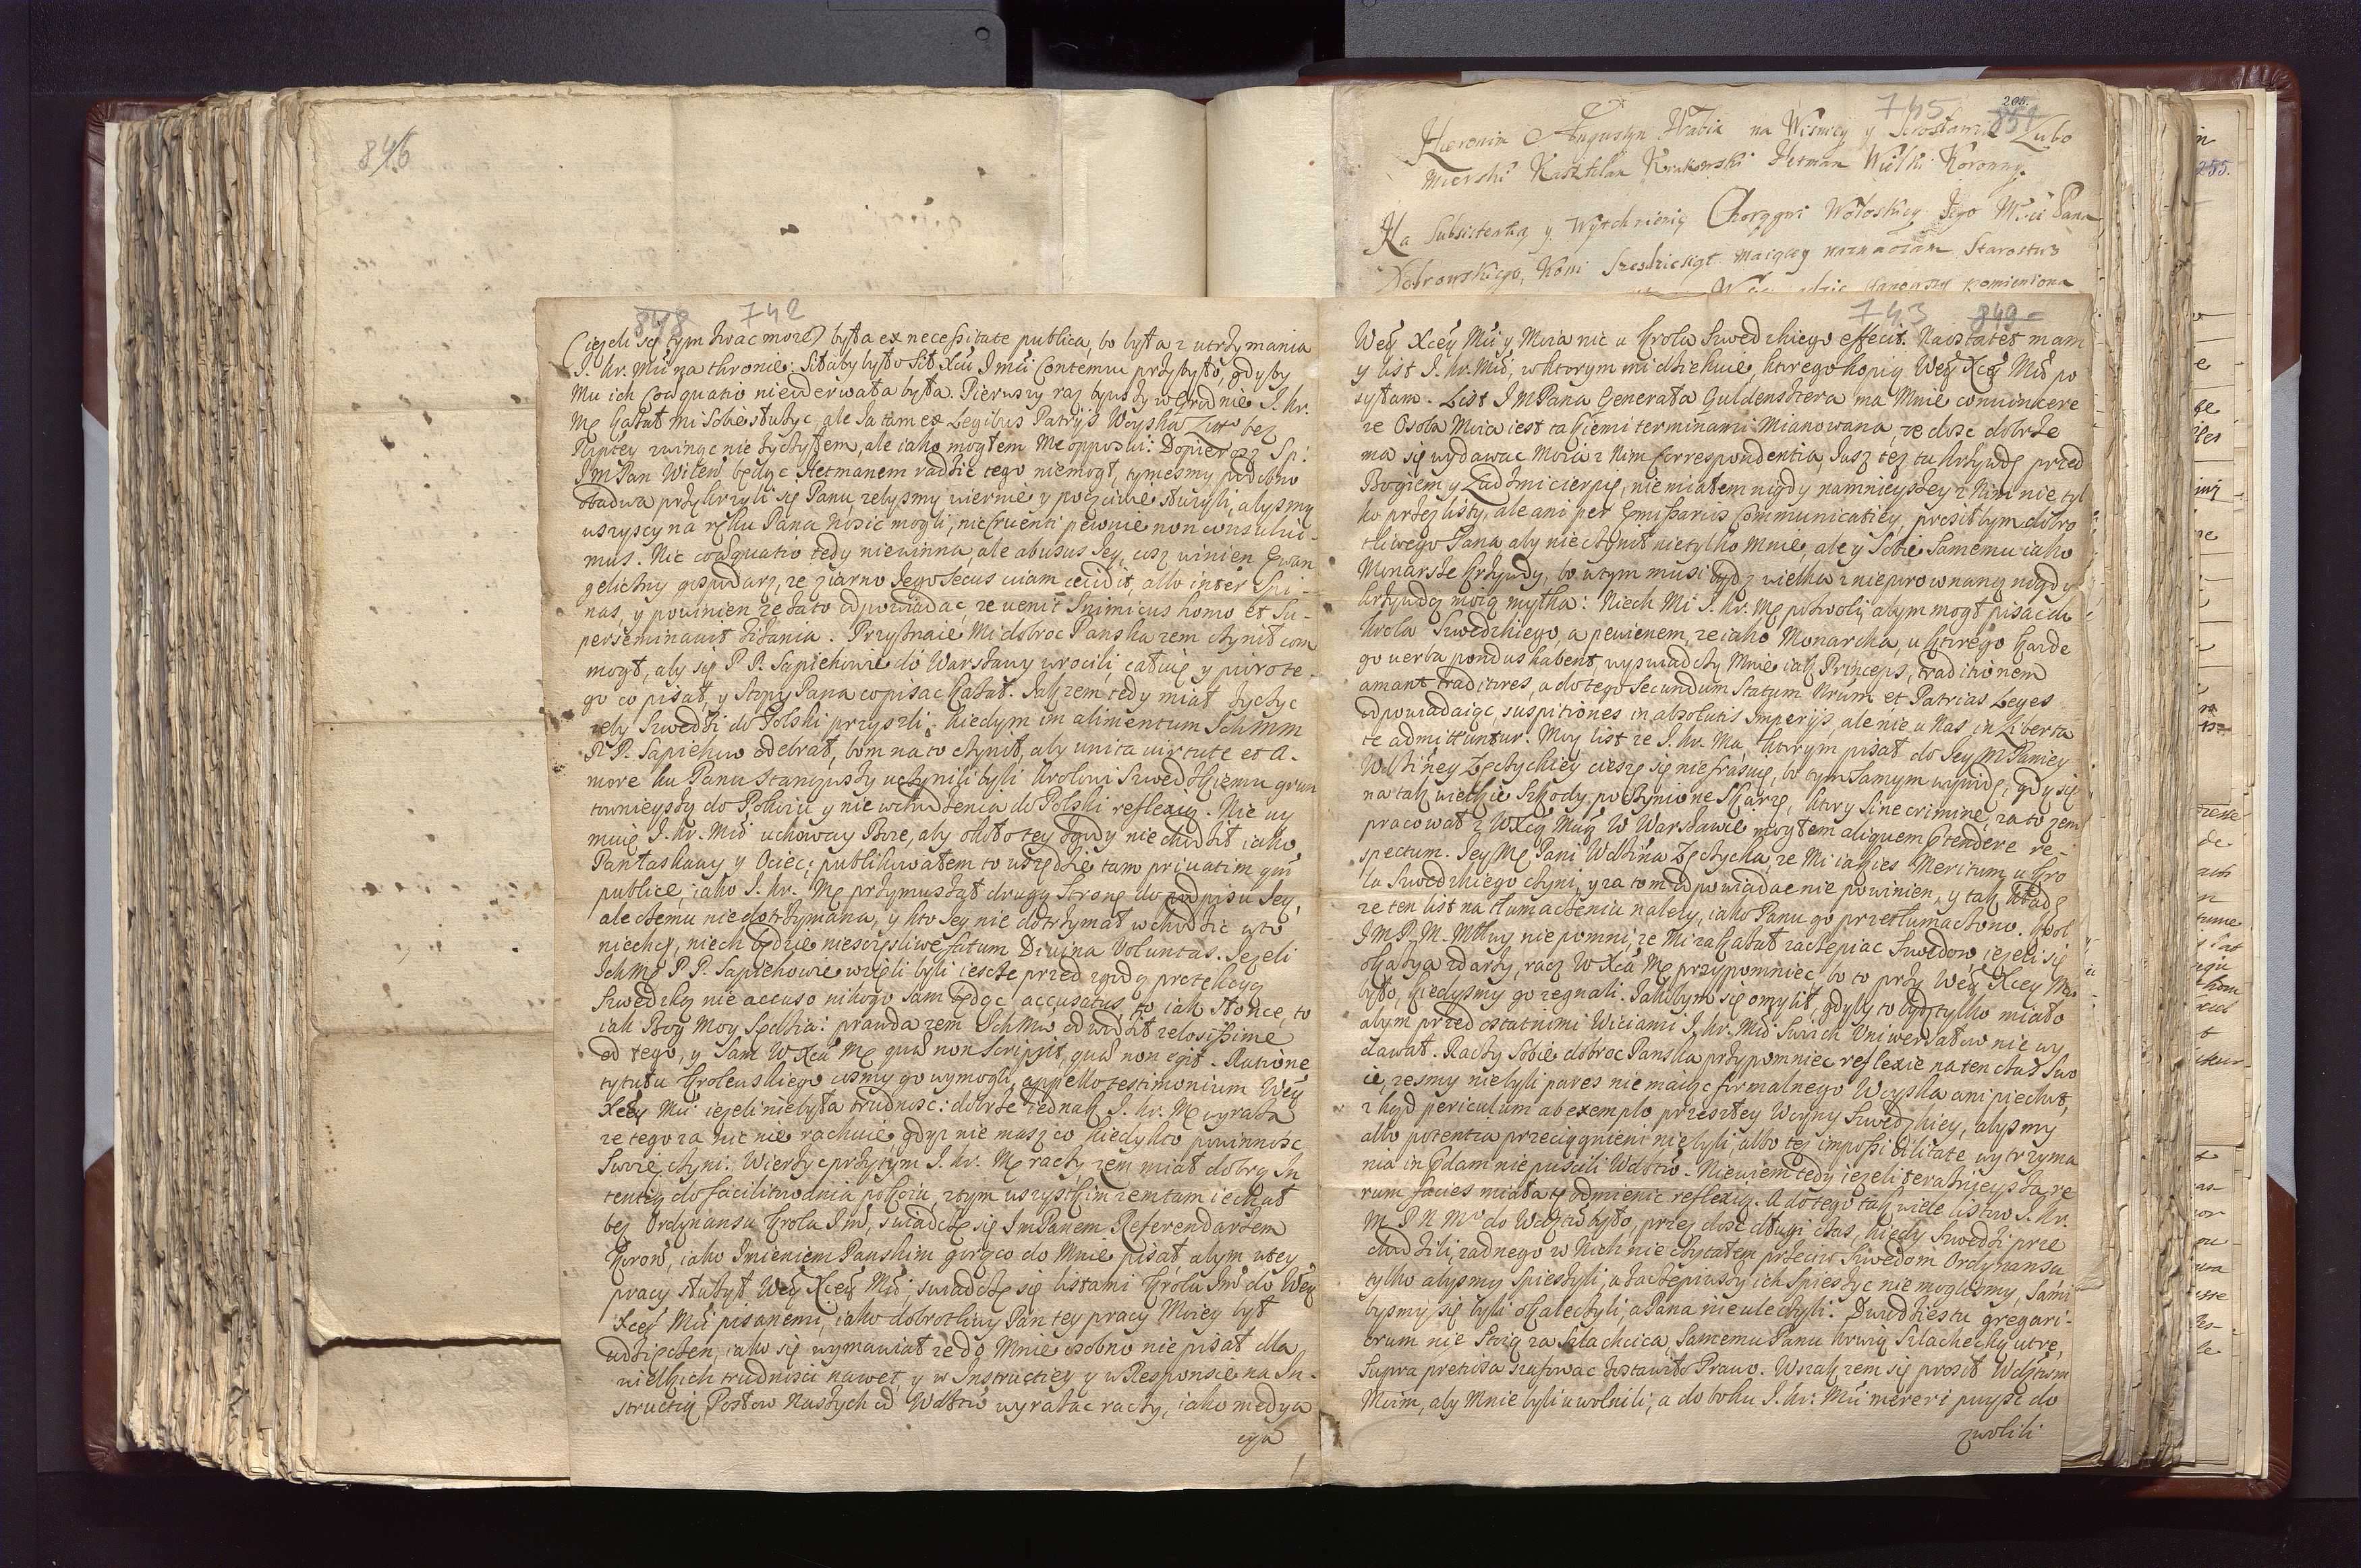 846
745
205.
851
Hieronim Augustyn Hrabia na Wisniczu y Jarosławiu Lubo
mierski Kasztelan Krakowski Hetman Wielki Koronny.
Na Subsistentią y Wytchnienię Chorągwi Wołoskiey Jego Mści Pana
Koni Sześćdziesiąt maiącey naznaczam Starostwo
848 742
(ieżeli się tym zwac może) była ex necessitate publica, bo była z utrzymania
J. Kr. Mći na thronie:
Mu ich Coaequatio nieoderwała była. Pierwszy raz bywszy w Grodnie J. Kr.
Mć kazał mi Sobie służyc, ale ia tam ex Legibus Patrijs Woyska Litt bez
Rzptey zwinąc nie życzyłem, ale iako mogłem me opposui: Dopiero zą Sp:
JmPan Wilen będąc Hetmanem radzic tego niemogł, tymesmy podobno
obadwa przykrzyli się Panu, żebysmy wiernie y poczciwie służyli, abysmy
wszyscy na ręku Pana nosic mogli, pewnie non consului-
mus. Nic Coaequatio tedy niewinna, ale abusus Jey, cosz winien Ewan
geliczny gospodarz, że ziarno Jego secus uiam cecidit, albo inter Spi-
nas, y powinien że za to odpowiadac, że uenit Inimicus homo et Su-
perseminauit Zizania. Przyznaie Mi dobroc Panska żem czynił com
mogł, aby się P P. Sapiehowie do Warszawy wrocili, całuię y pióro te-
go co pisał, y Stopy Pana co pisac kazał. Jak żem tedy miał życzyc
żeby Szwedzi do Polski przyszli; kiedym im alimentum Ichmm
P P. Sapiehow odebrał, bom na to czynił, aby unita uirtute et a-
more ku Panu stanąwszy uczynili byli Krolowi Szwedzkiemu grun
townieyszy do Pokoiu y nie wchodzenia do Polski reflexią. Nie uy
muię J. Kr. Mći uchoway Boże, aby około tey zgody nie chodził iako
Pan łaskawy y Ociec; publikowałem to wszędzie tam priuatim qm
publice, iako J. Kr. Mć przymuszał drugą stronę do podpisu Jey,
ale czemu niedotrzymana, y kto Jey nie dotrzymał wchodzic w to
niechcę, niech będzie niesczęsliwe fatum Diuina Voluntas. Jeżeli
Ichmć P P. Sapiehowie wzięli byli iescze przed zgodą protekcyą
Szwedzką nie accuso nikogo sam będąc accusatus, to iak słonce, to
iak Bog Moy Sędzia: prawda żem Ichmw odwodził zelosissime
od tego, y Sam W Xca Mć quid non Scripsit, quid non egit. Ratione
tytułu Krolewskiego cosmy go wymogli, appello testimonium Wey
Xcey Mći ieżeli niebyła trudnosc: dobrze iednak J. Kr. Mć wyraża
że tego za nic nie rachuie gdyż nie masz co kiedy kto powinnosc
Swoię czyni: Wierzyc przytym J. Kr. Mć raczy, żem miał dobrą In
tentią do facilitowania pokoiu, z tym wszystkim żem tam iechał
bez Ordynansu Krola Jm, swiadczę się JmPanem Referendarzem
Koron, iako Jmieniem Panskim gorąco do Mnie pisał, abym w tey
pracy służył Wey Xcey Mći, swiadczę się listami Krola Jm do Wey
Xcey Mći pisanemi, iako dobrotliwy Pan tey pracy Moiey był
wdzięczen, iako się wymawiał że do Mnie osobno nie pisał dla
wielkich trudnosci nawet y w Instructiey y w Responsie na In-
structią Posłow Naszych od Wdztw wyrażac raczy, iako medya
cya
743 849
Wey Xcey Mći y Moia nic u Krola Szwedzkiego effecit. Naostatek mam
y list J. Kr. Mći, w ktorym mi dziekuie, ktorego kopią Wey Xcey Mći po
syłam. List JmPana Generała Guldensztera ma Mnie conuinkere
że Osoba Moia iest takiemi terminami mianowana, że dosc dobrze
ma się wydawac Moia z Nim Correspondentia, Jusz też tu krzywdę przed
Bogiem y Ludzmi cierpię, niemiałem nigdy namnieyszey z Nim nie tyl
ko przez listy, ale ani per Emissarios Communicatiey, prosiłbym dobro
tliwego Pana aby nie czynił nie tylko Mnie, ale y Sobie Samemu iako
Monarsze krzywdy, bo w tym musi bydz wielka z nieporownaną nigdy
krzywdą moią myłka: Niech Mi J. Kr. Mć pozwoli, abym mogł pisac do
Krola Szwedzkiego, a pewienem, że iako Monarcha, u ktorego każde
go uerba pondus habent, wyswiadczy Mnie iak Princeps, traditionem
amant traditores, a do tego Secundum Statum Nrum et Patrias Leges
odpowiadaiąc, suspitiones in absolutis Imperijs, ale nie u Nas in Liberta
te admittuntur. Moy list że J. Kr. Ma, ktorym pisał do Jey Mć Paniey
Wdziney Łęczyckiey cieszę się nie frasuię, bo tym samym wynidę, gdy się
na tak wielkie Szkody poczynione skarżę, ktory sine crimine, za to żem
pracował z WXcą Mcią w Warszawie mogłem aliquem ptendere re-
spectum. Jey Mć Pani Wdzina Łęczycka, że Mi iakies Meritum u Kro
la Szwedzkiego czyni, y za to m odpowiadac nie powinien, y tak kładę
że ten list na tłumaczeniu należy, iako Panu go przetłumaczono.
JmP. M. nie pomni, że Mi zakazał zaczepiac Szwedow ieżeli się
okazya zdarzy, racz W Xca Mć przypomniec, bo to przy Wey Xcey Mci
było, kiedysmy go żegnali. Jakobym się omylił, gdyby to bydz tylko miało
abym przed ostatnimi Wiciami J. Kr. Mći Swoich Uniwersałow nie wy
dawał. Raczy Sobie dobroc Panska przypomniec reflexie na ten czas Swo
ie, żesmy niebyli pares nie maiąc formalnego Woyska ani piechot,
z kąd periculum ab exemplo przeszłey Woyny Szwedzkiey, abysmy
albo potentia przeciągnieni niebyli, albo tesz impossibilitate wytrzyma
nia in pdam niepuscili Wdztw. Niewiem tedy ieżeli teraznieysza re
rum facies miała odmienic reflexią. A do tego tak wiele listow J. Kr.
M P N Mo do Wdztw było, przez dosc długi czas, kiedy Szwedzi prze
chodzili, żadnego w Nich nie czytałem przeciw Szwedom Ordynansu
tylko abysmy spieszyli, a zaczepiwszy ich spieszyc nie moglismy, Sami
bysmy się byli okaleczyli, a Pana nie uleczyli. Dwudziestu gregari-
orum nie stoią za Szlachcica, Samemu Panu krwią Szlachecką
Supra pretiosa szafowac zostawiło Prawo. Wszak żem się prosił Wdztwom
Moim, aby Mnie byli uwolnili, a do boku J. Kr: Mći mereri puyść do
zwolili
285.